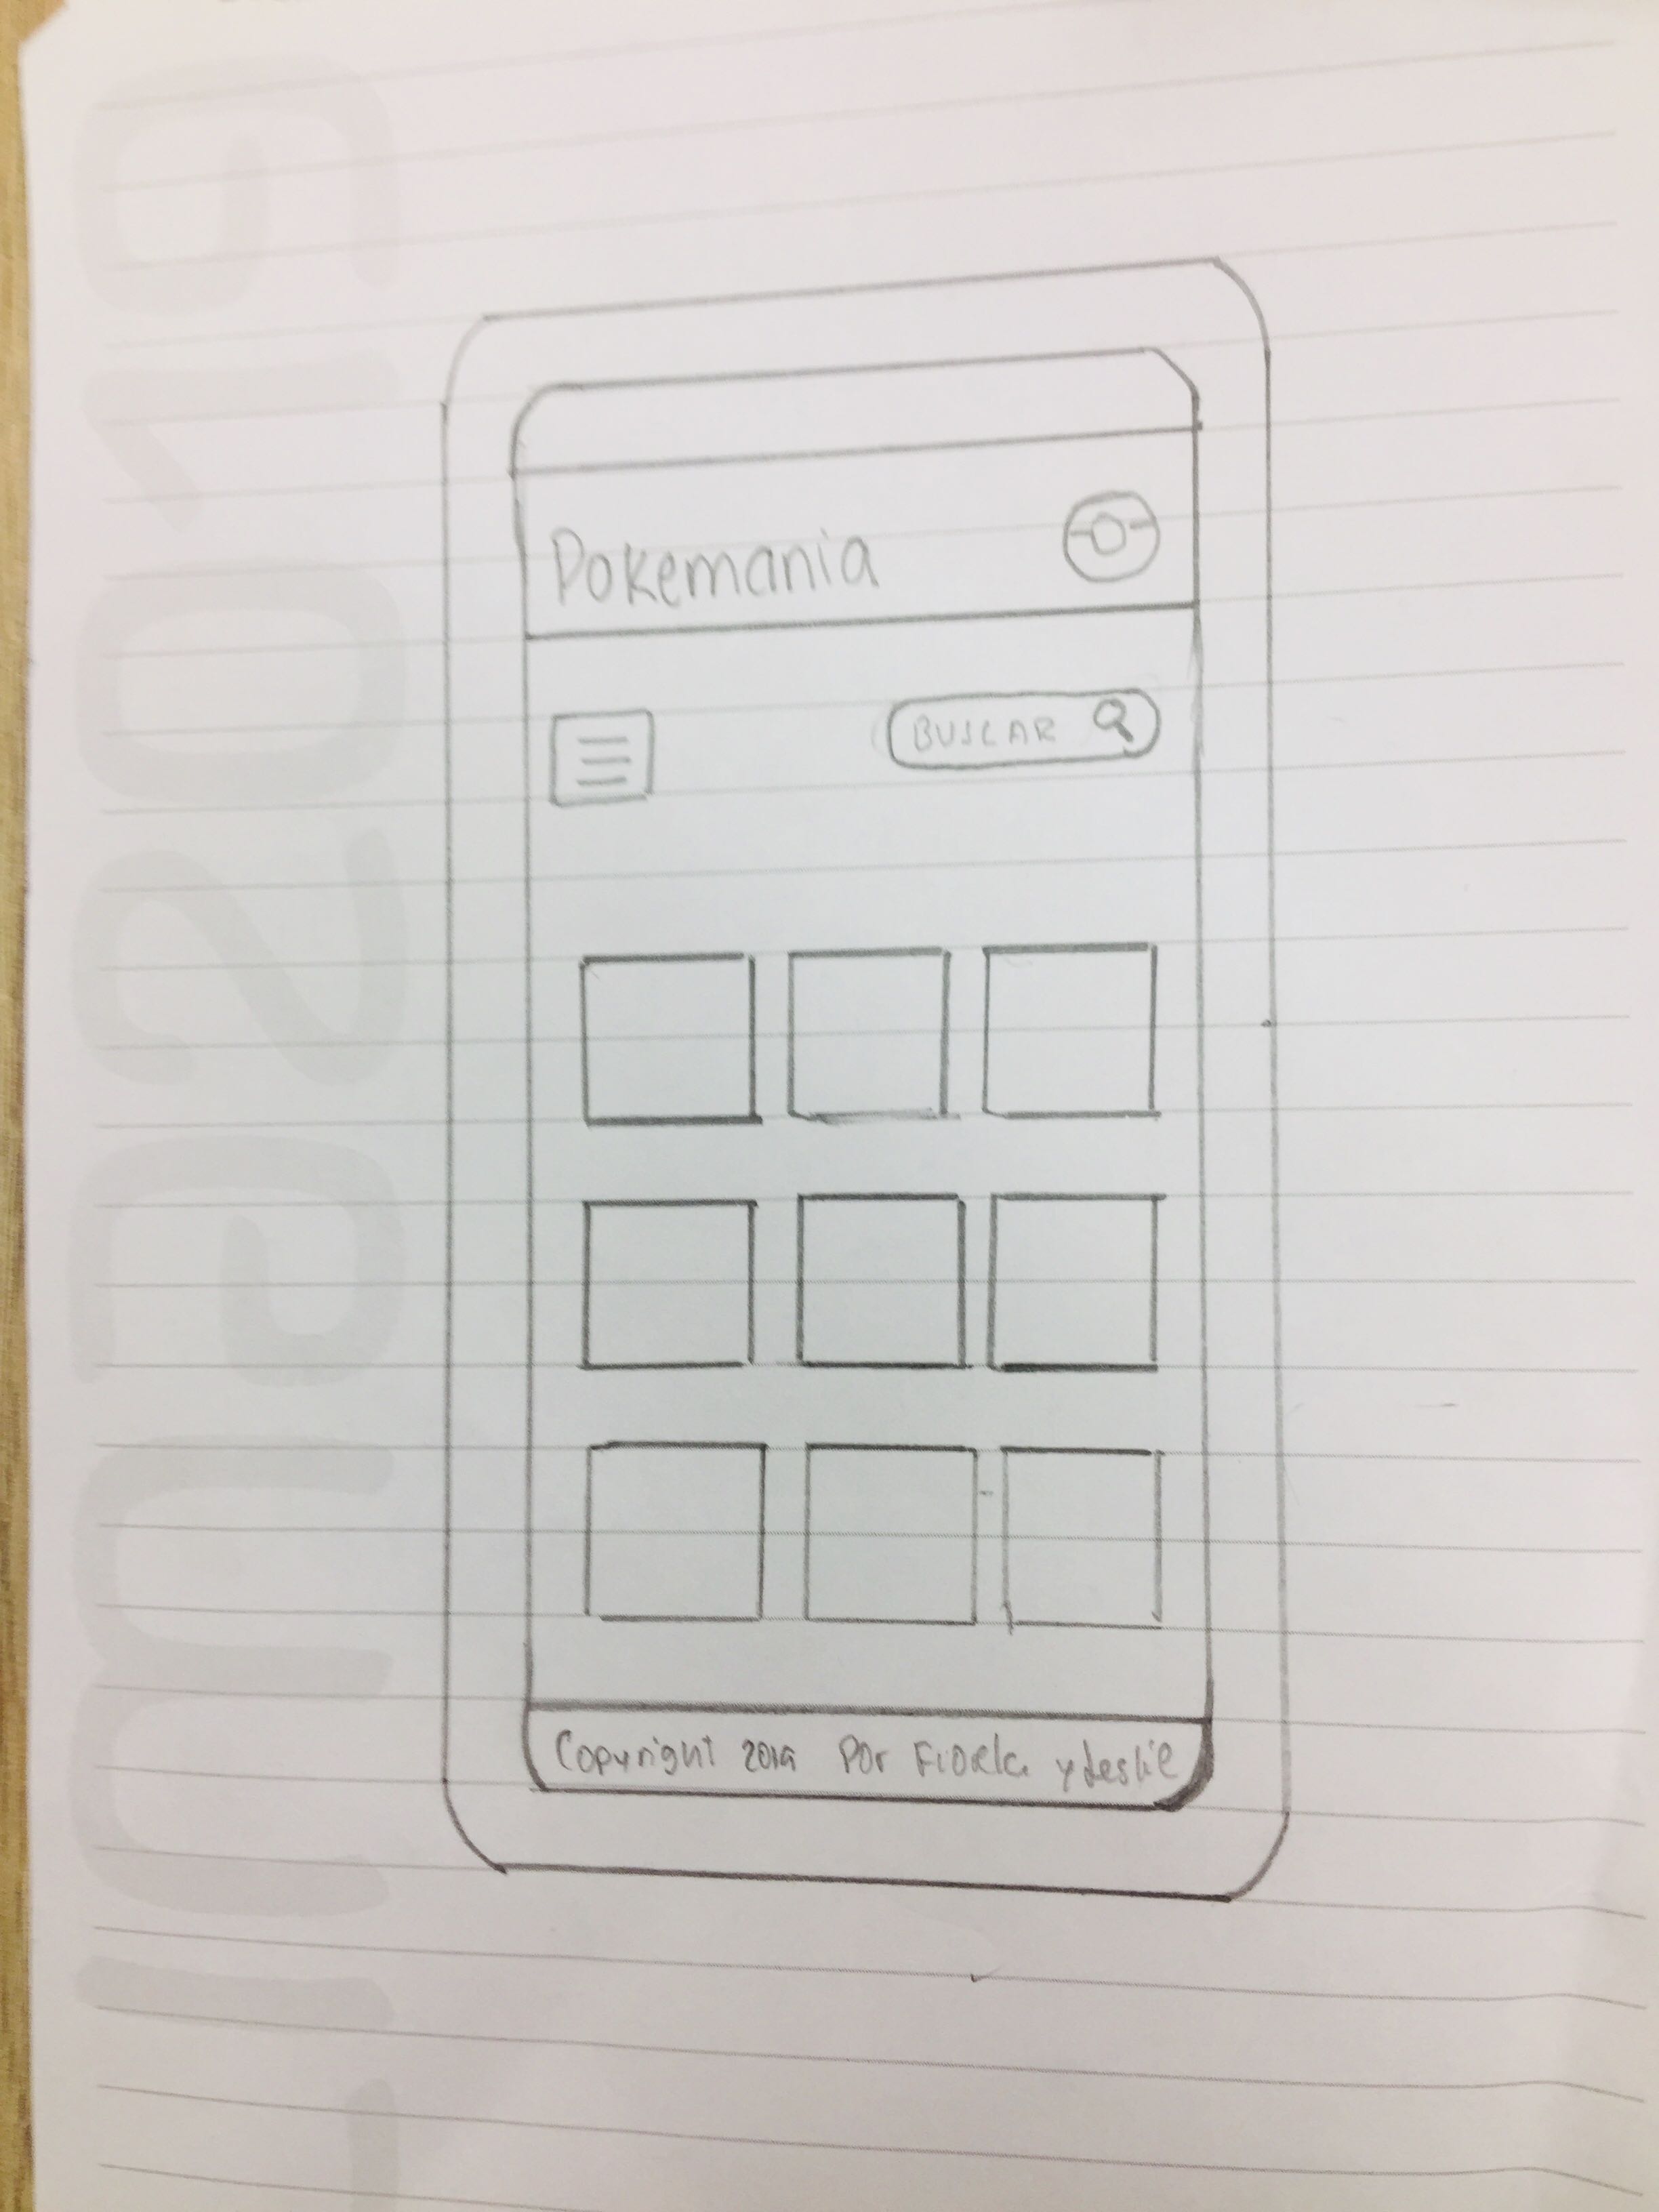 Pokemania
BUSCAR
Copyright 2019 Por Fiorela y Leslie